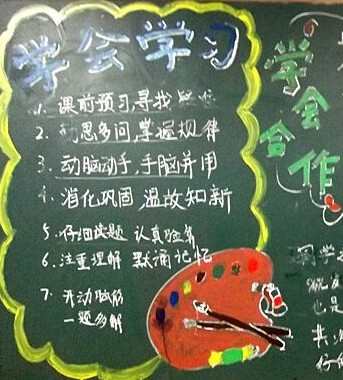 学会学习
1. 课前预习,寻找疑难
2. 勤思多问,掌握规律
3. 动脑动手,手脑并用
4. 消化巩固,温故知新
5. 仔细读题 认真验算
6. 注重理解 默诵记忆
7. 开动脑筋
一题多解
学会
合作
同学
也是